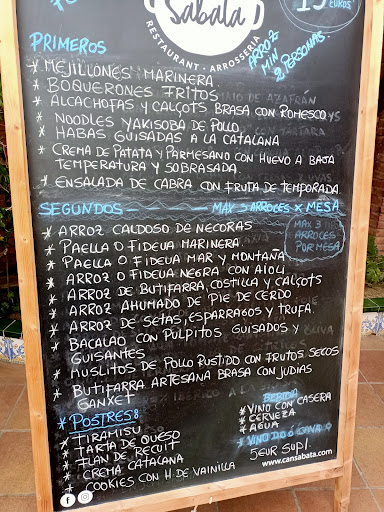 Sabata
RESTAURANT · ARROSSERIA
15
EUROS
ARROZ
MIN
2 PERSONAS.
PRIMEROS
* MEJILLONES MARINERA
* BOQUERONES FRITOS
* ALCACHOFAS Y CALÇOTS BRASA CON ROMESCO
* NOODLES YAKISOBA DE POLLO
* HABAS GUISADAS A LA CATALANA
* CREMA DE PATATA Y PARMESANO CON HUEVO A BAJA
TEMPERATURA Y SOBRASADA
* ENSALADA DE CABRA CON FRUTA DE TEMPORADA
SEGUNDOS — MAX 3 ARROCES X MESA
MAX 3
ARROCES
POR MESA
* ARROZ CALDOSO DE NECORAS
* PAELLA O FIDEUA MARINERA
* PAELLA O FIDEUA MAR Y MONTAÑA
* ARROZ O FIDEUA NEGRA CON AIOLI
* ARROZ DE BUTIFARRA, COSTILLA Y CALÇOTS
* ARROZ AHUMADO DE PIE DE CERDO
* ARROZ DE SETAS, ESPARRAGOS Y TRUFA
* BACALAO CON PULPITOS GUISADOS Y
GUISANTES
* MUSLITOS DE POLLO RUSTIDO CON FRUTOS SECOS
* BUTIFARRA ARTESANA BRASA CON JUDIAS
GANXET
* POSTRES:
* TIRAMISU
* TARTA DE QUESO
* FLAN DE RECUIT
* CREMA CATALANA
* COOKIES CON H. DE VAINILLA
BEBIDA
* VINO CON CASERA
* CERVEZA
* AGUA
* VINO DO Ó CAVA
5EUR SUPL.
www.cansabata.com